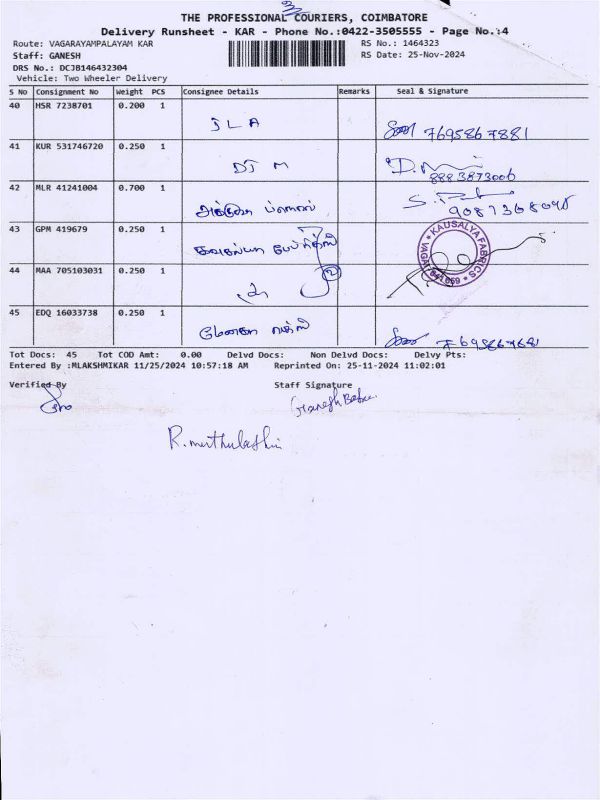 THE PROFESSIONAL COURIERS, COIMBATORE
Delivery Runsheet - KAR - Phone No.:0422-3505555 - Page No.:4
Route: VAGARAYAMPALAYAM KAR
RS No.: 1464323
Staff: GANESH
RS Date: 25-Nov-2024
DRS No.: DCJB146432304
Vehicle: Two Wheeler Delivery
S No Consignment No Weight PCS Consignee Details Remarks Seal & Signature
40 HSR 7238701 0.200 1
JLA 7695867881
41 KUR 531746720 0.250 1
DJM 8883873006
42 MLR 41241004 0.700 1
43 GPM 419679 0.250 1
KAUSALYA FABRICS
44 MAA 705103031 0.250 1
2
45 EDQ 16033738 0.250 1
மேனகா
Tot Docs: 45 Tot COD Amt: 0.00 Delvd Docs: Non Delvd Docs: Delvy Pts:
Entered By :MLAKSHMIKAR 11/25/2024 10:57:18 AM Reprinted On: 25-11-2024 11:02:01
Verified By Staff Signature
Ganesh Babu.
R. muthulashi